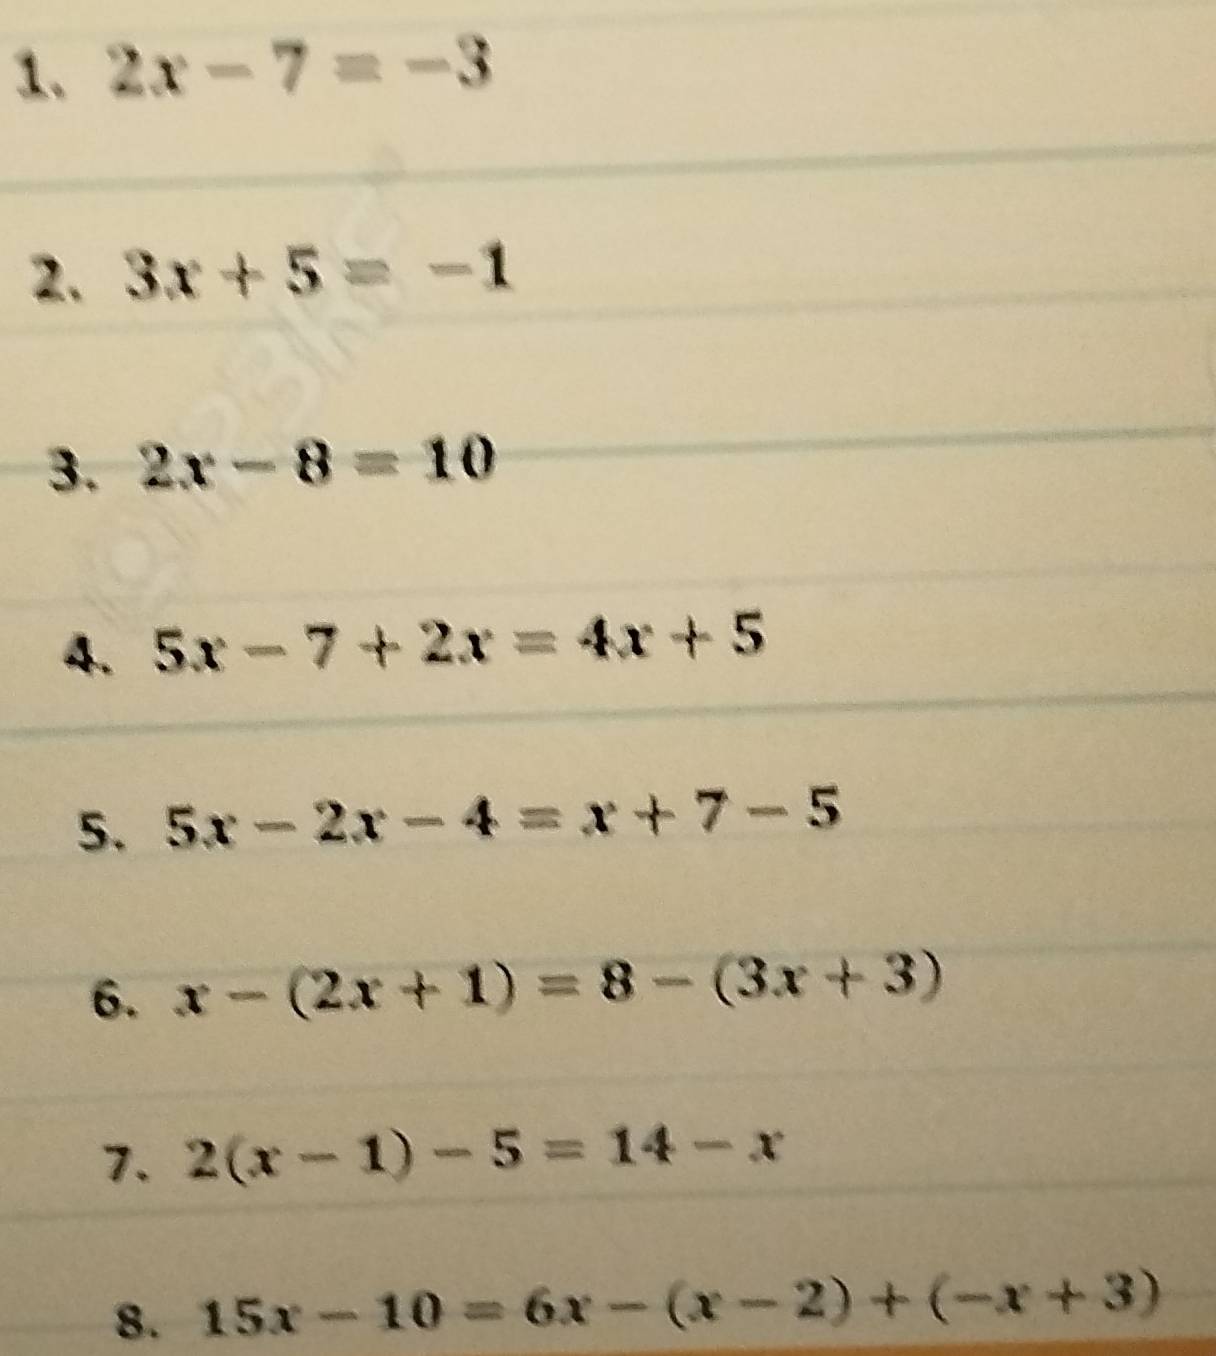 1. 2x − 7 = −3
2. 3x + 5 = −1
3. 2x − 8 = 10
4. 5x − 7 + 2x = 4x + 5
5. 5x − 2x − 4 = x + 7 − 5
6. x − (2x + 1) = 8 − (3x + 3)
7. 2(x − 1) − 5 = 14 − x
8. 15x − 10 = 6x − (x − 2) + (−x + 3)